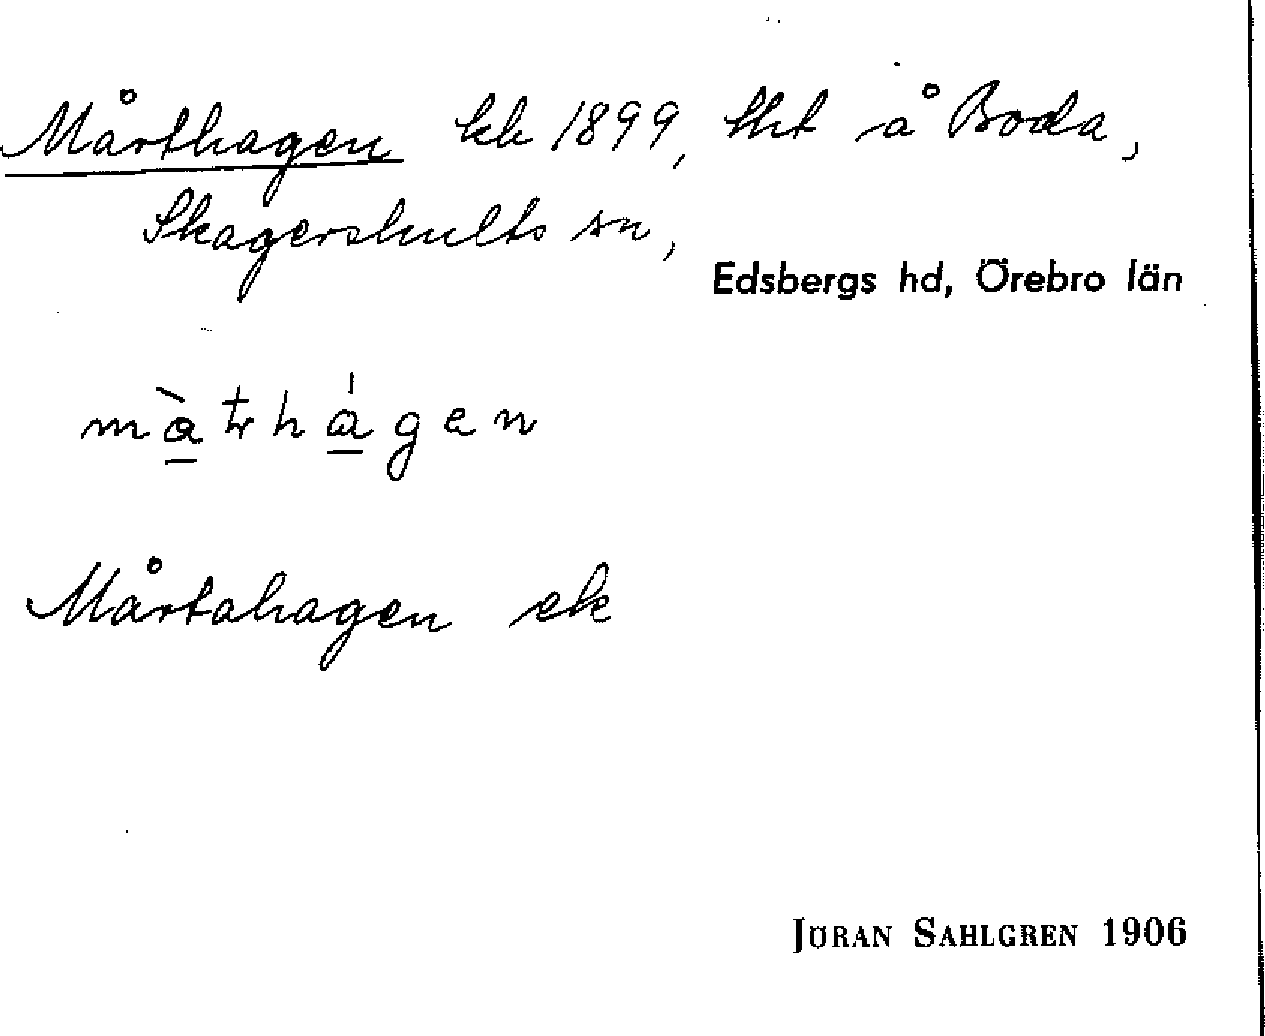 Mårthagen kb 1899, tht å Boda,
Skagershults sn,
Edsbergs hd, Örebro län
màtrhágen
Mårtahagen ek
JÖRAN SAHLGREN 1906